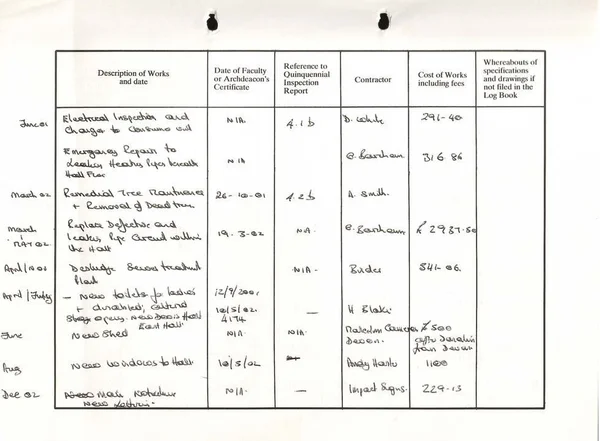 Description of Works
and date
Date of Faculty
or Archdeacon's
Certificate
Reference to
Quinquennial
Inspection
Report
Contractor
Cost of Works
including fees
Whereabouts of
specifications
and drawings if
not filed in the
Log Book
June 01
Electrical Inspection and
N/A.
4.1b
D. White
291-40
Changes to Consumer unit
Emergency Repairs to
N/A
316 86
Leaking Heating Pipes beneath
Hall Floor
March 02
Remedial Tree Maintenance
26-10-01
4.2b
A. Smith.
+ Removal of Dead tree
March
MAY 02
Replace Defective and
19.3-02
N/A.
£2937-50
Leaking Pipe Circuit within
the Hall
April 02
Sewer treatment
N/A-
541-06.
Plant
April/July
- New toilets for ladies
12/9/2001
+ disabled,
10/5/02.
—
H Blake
Stage opening. New Doors Hall
4174
East Hall.
June
New Shed
N/A
N/A.
Malcolm
£500
Devon.
from Devon
Aug
New Windows to Hall
10/5/02
Andy
1100
Dec 02
N/A.
—
Impact Signs.
229-13
New